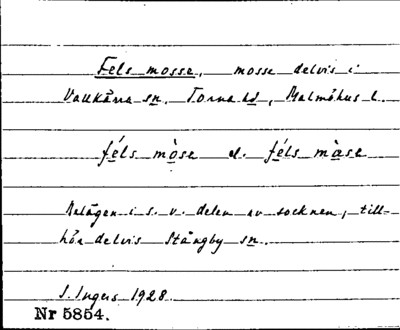 Fels mosse, mosse delvis i
Vallkärra sn, Torna hd, Malmöhus l.
féls mòse el. féls màse
Belägen i s. v. delen av socknen, till-
hör delvis Stångby sn.
S. Ingers 1928
Nr 5854.